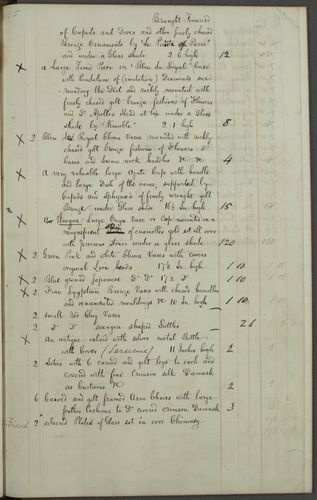 Brought Forward
of Cupids and Doves and other finely chased
Bronze Ornaments by "Le of Paris"
and under a Glass shade 2 6 high 12
X a Large Time Piece in "Bleu du Royal" Case
with Pendulum of (imitation) Diamonds
the Dial and richly mounted with
finely chased gilt bronze festoons of Flowers
and Dº Apollos Head at top under a Glass
shade by 2 . 1 high 8
X 2 Bleu du Royal China Vases mounted with richly
chased gilt bronze festoons of Flowers Dº
bases and swan neck handles &c &c 4
X A very valuable large Agate Cup with handle
and large Dish of the same, supported by
Cupids and Sphynx's of finely wrought gilt
Bronze under Glass shade 16½ In. high 15
X An Unique large Onyx Vase or Cup mounted in a
magnificent of enamelled gold set all over
with precious stones under a glass shade 120
X 2 Green Pink and white China Vases with covers
original Lyon heads 17½ In. high 1 10
X 2 Blue ground Japanese Dº Dº 17½ Dº 1 10
X 2 Fine Egyptian Bronze Vases with chased handles
and ornamented mouldings &c 10 In. high 1 10
2 small Red Clay Vases
2 Dº Dº sexagon shaped Bottles - 2 6
X An antique valued with silver metal Bottle
with Cover (Saracenic) 11 Inches high 2
2 Settees with 6 carved and gilt legs to each and
covered with fine Crimson silk Damask
as Curtains &c 2
6 Carved and gilt framed Arm Chairs with large
feather Cushions to Dº covered crimson Damask 3
Fixed 2 silvered Plates of Glass set in over Chimney